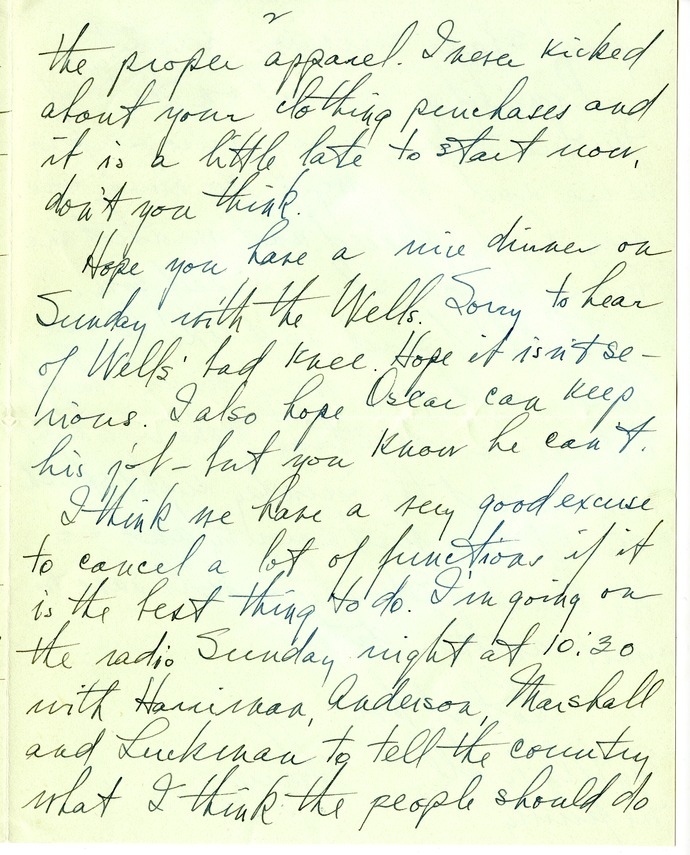 2
the proper apparel. I never kicked
about your clothing purchases and
it is a little late to start now,
don't you think.
Hope you have a nice dinner on
Sunday with the Wells. Sorry to hear
of Wells' bad knee. Hope it isn't se-
rious. I also hope Oscar can keep
his job - but you know he can't.
I think we have a very good excuse
to cancel a lot of functions if it
is the best thing to do. I'm going on
the radio Sunday night at 10:30
with Harriman, Anderson, Marshall
and Luckman to tell the country
what I think the people should do